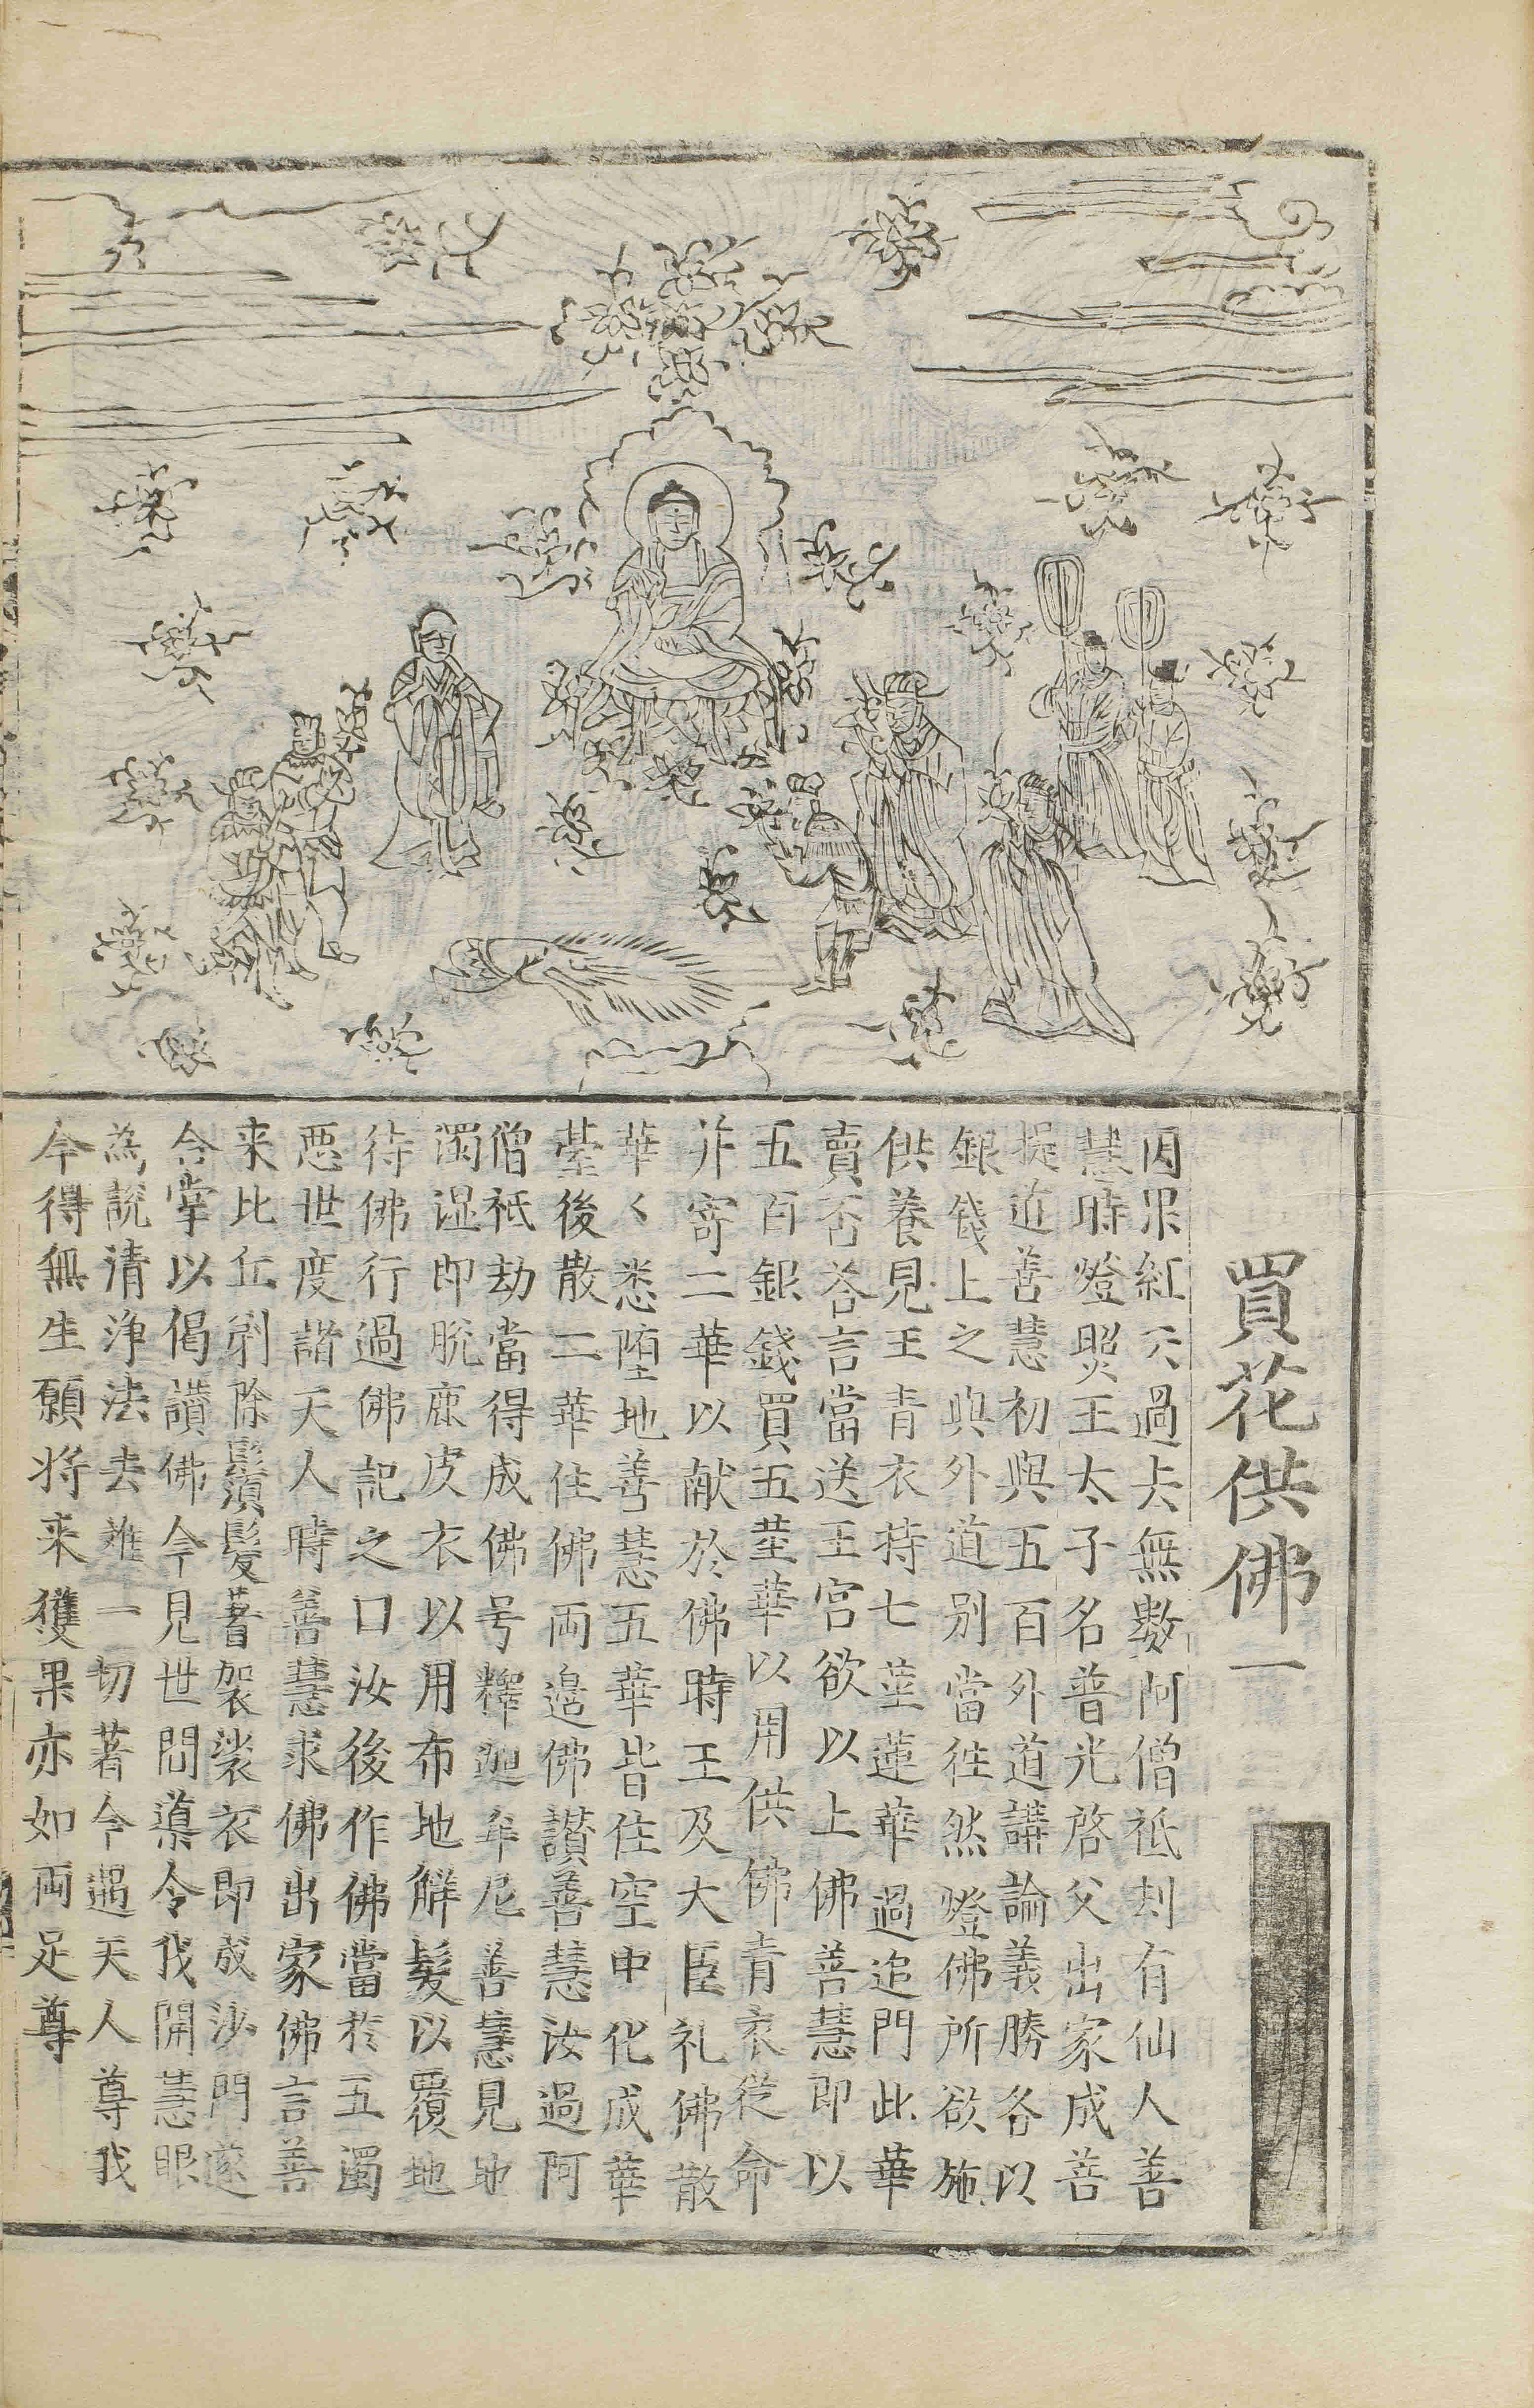 買花供佛一
因果經云過去無數阿僧祇刼有仙人善
慧時燈照王太子名普光啓父出家成菩
提道善慧初與五百外道講論義勝各以
銀錢上之與外道别當徃然燈佛所欲施
供養見王青衣持七莖蓮華過追問此華
賣否荅言當送王宫欲以上佛善慧即以
五百銀錢買五莖華以用供佛青衣從命
并寄二華以献於佛時王及大臣礼佛散
華〻悉堕地善慧五華皆住空中化成華
䑓後散二華住佛两邉佛讃善慧汝過阿
僧祇劫當得成佛号釋迦牟尼善慧見地
濁湿即脫鹿皮衣以用布地觧髮以覆地
待佛行過佛記之曰汝後作佛當於五濁
悪世度諸天人時善慧求佛出家佛言善
来比丘剃除鬚髮著袈裟衣即成沙門遂
合掌以偈讃佛今見世間導令我開慧眼
為説清浄法去離一切著今遇天人尊我
今得無生願将来獲果亦如两足尊